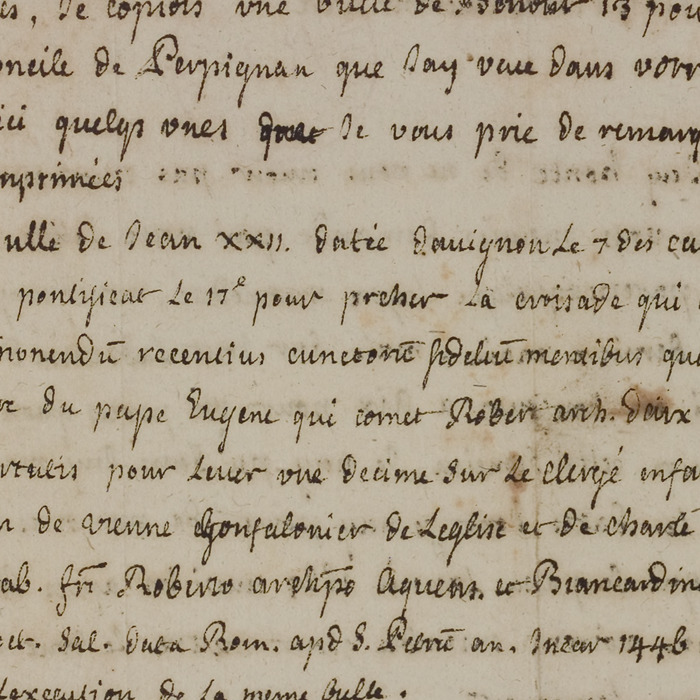 es, Je copiois vne bulle de Benoist 13 pou
oncile de Perpignan que Jay veue dans votr
ici quelqs vnes Je vous prie de remarq
mprimées
ulle de Jean xxii. datée dauignon Le 7 des ca
pontificat Le 17e pour precher La croisade qui
monendũ recentius cunctorũ fidelũ mentibus que
du pape Eugene qui comet Rober arch. daix
rtalis pour Leuer vne decime sur Le clergé enfa
n de vienne gonfalonier de Leglise et de charle
ab. fri Roberto archipõ Aquens. et Biancardin
et. Sal. data Rom. apd S. Petrũ an. Incar 1446
lexecution de La meme bulle.